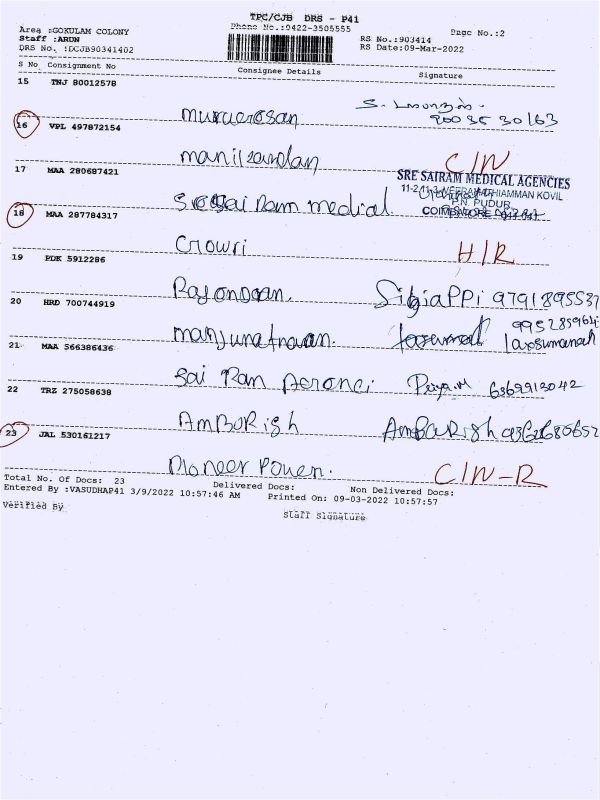 TPC/CJB DRS - P41
Phone No.:0422-3505555
Page No.:2
Area :GOKULAM COLONY
Staff :ARUN
DRS No. :DCJB90341402
RS No.:903414
RS Date:09-Mar-2022
S No Consignment No Consignee Details Signature
15 TNJ 80012578
Murugesan
90036 30163
16 VPL 497872154
Manikandan C/N
17 MAA 280687421
SRE SAIRAM MEDICAL AGENCIES
Sree Sai Ram Medical
P.N. PUDUR
COIMBATORE
18 MAA 287784317
Gowri H/R
19 PDK 5912286
9791895537
20 HRD 700744919
Manjunathan
21 MAA 566386436
Sai Ram Priya.M 6369913042
22 TRZ 275058638
AMBURISH
23 JAL 530161217
Pioneer Power. C/N-R
Total No. Of Docs: 23 Delivered Docs: Non Delivered Docs:
Entered By :VASUDHAP41 3/9/2022 10:57:46 AM Printed On: 09-03-2022 10:57:57
Verified By Staff Signature